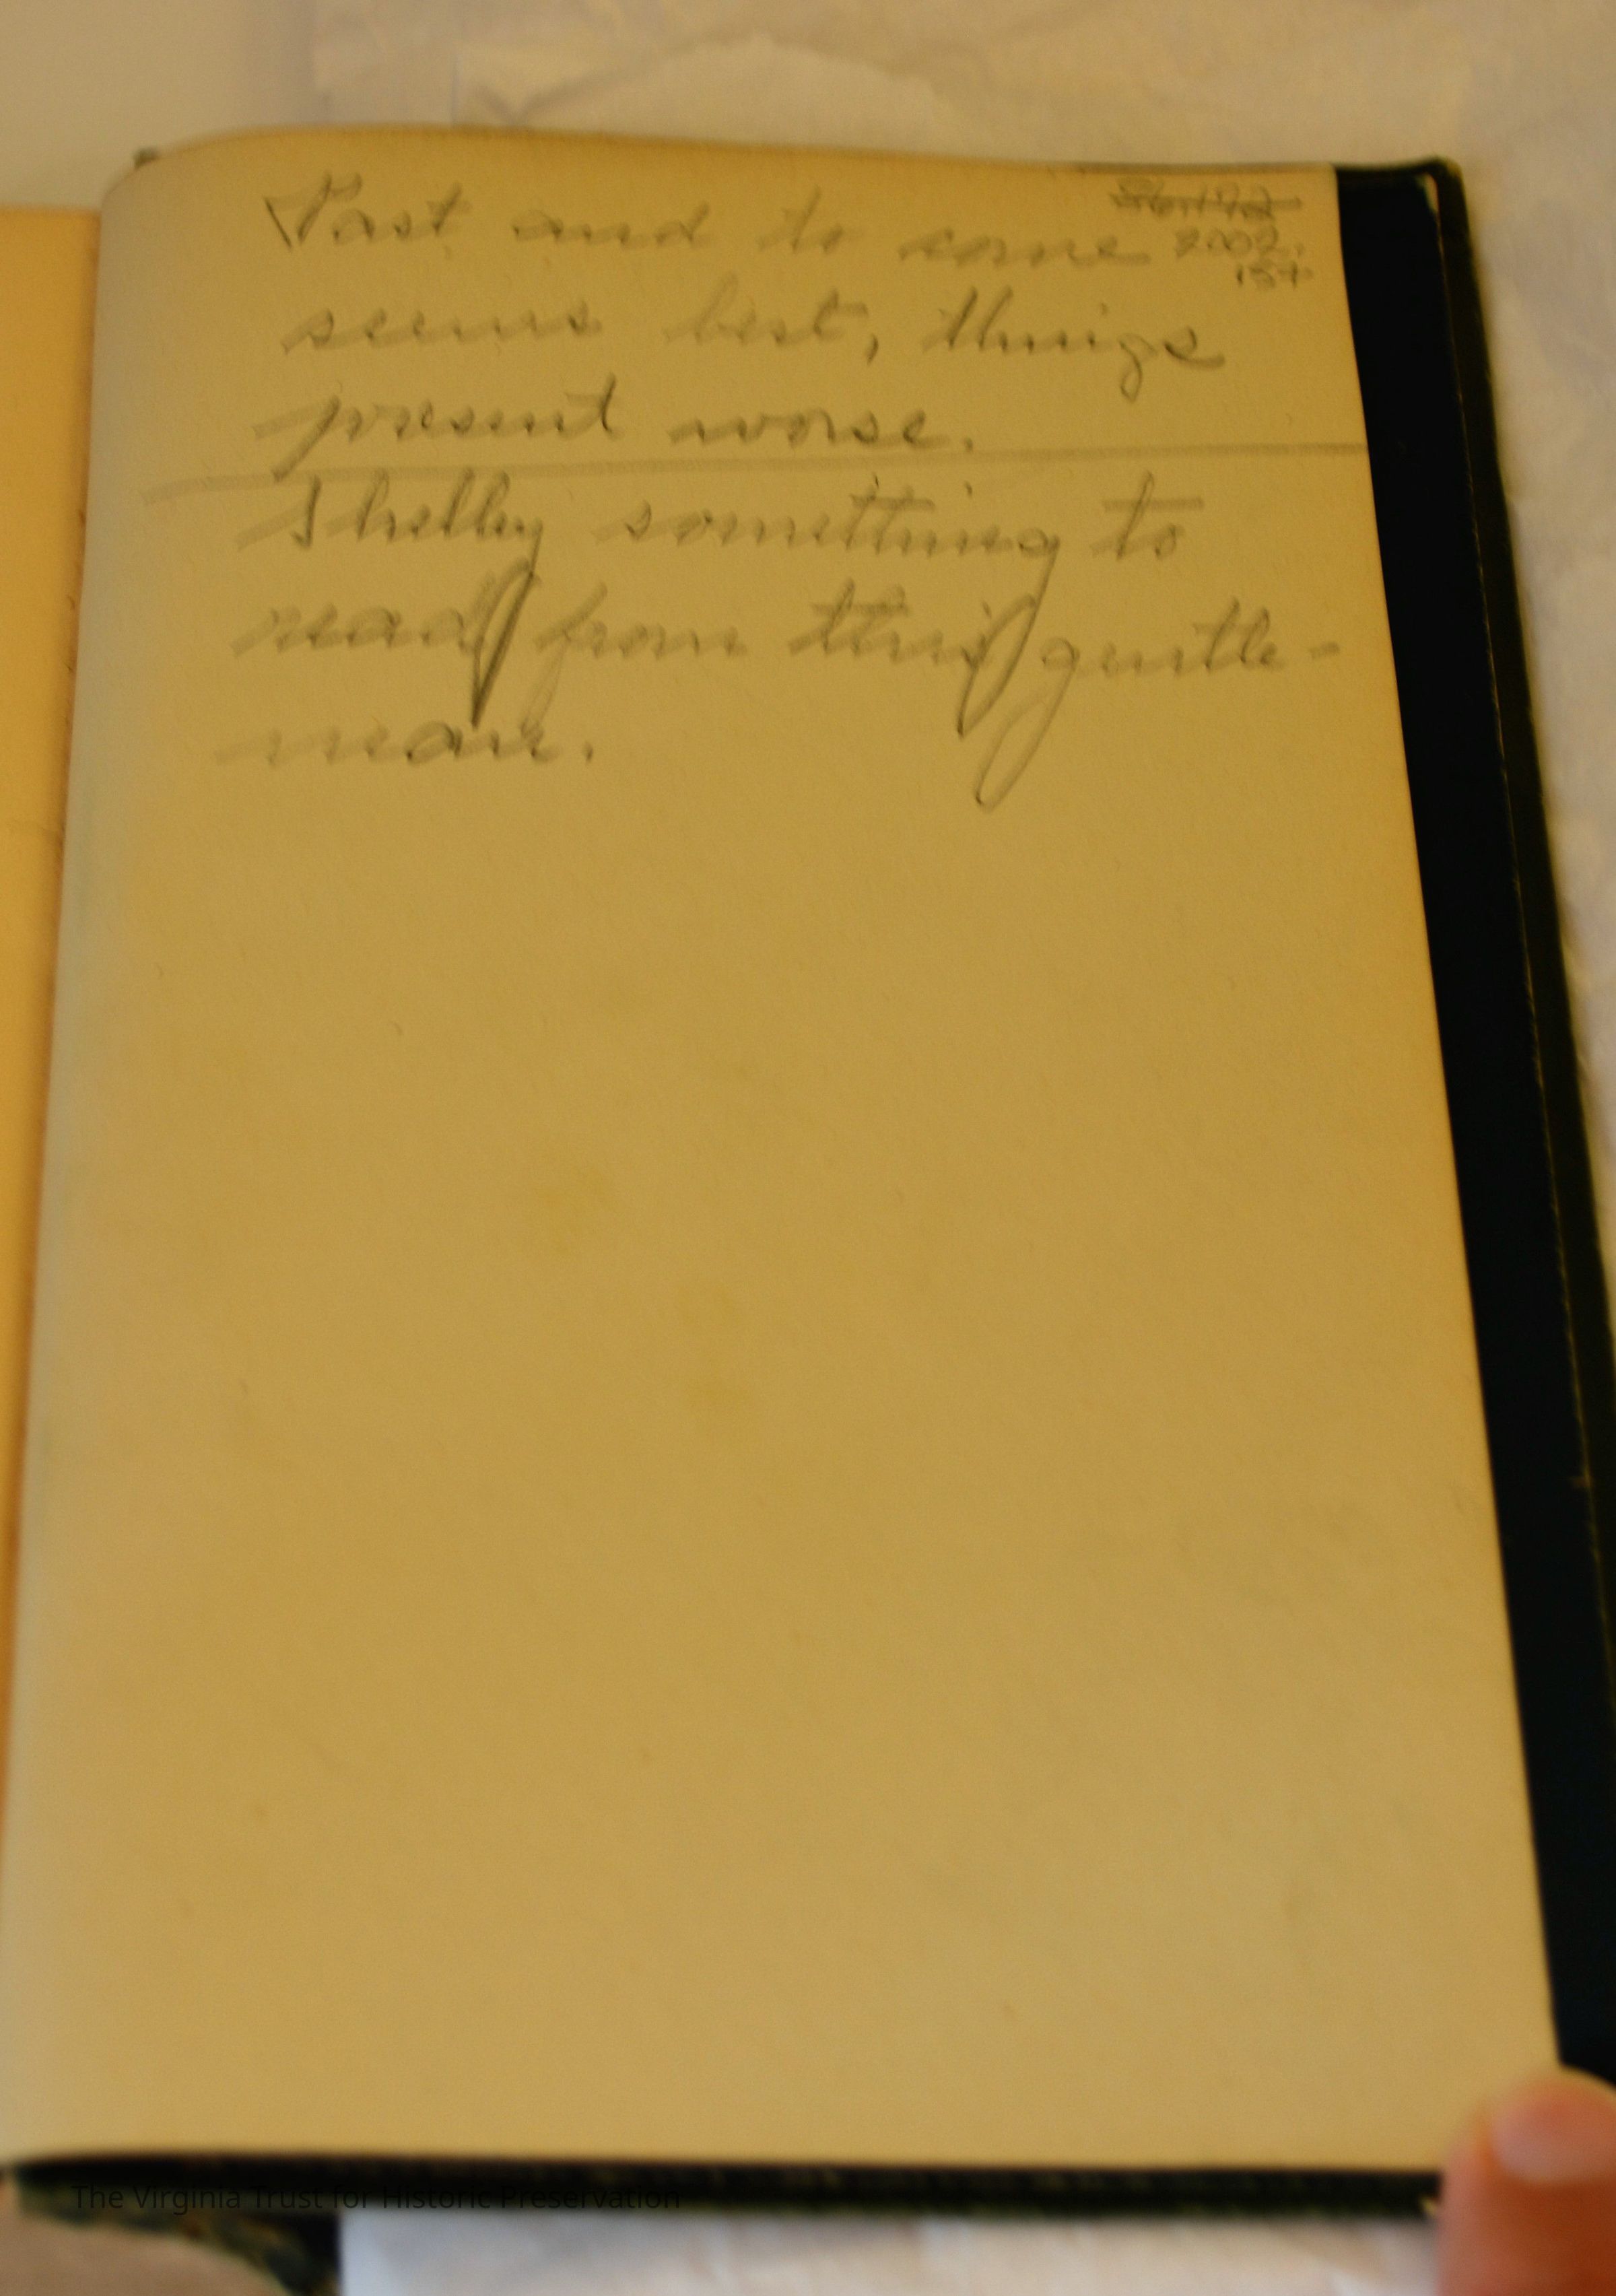 Past and to come
2002.
157
seems best, things
present worse.
Shelley something to
read from this gentle-
man.
The Virginia Trust for Historic Preservation